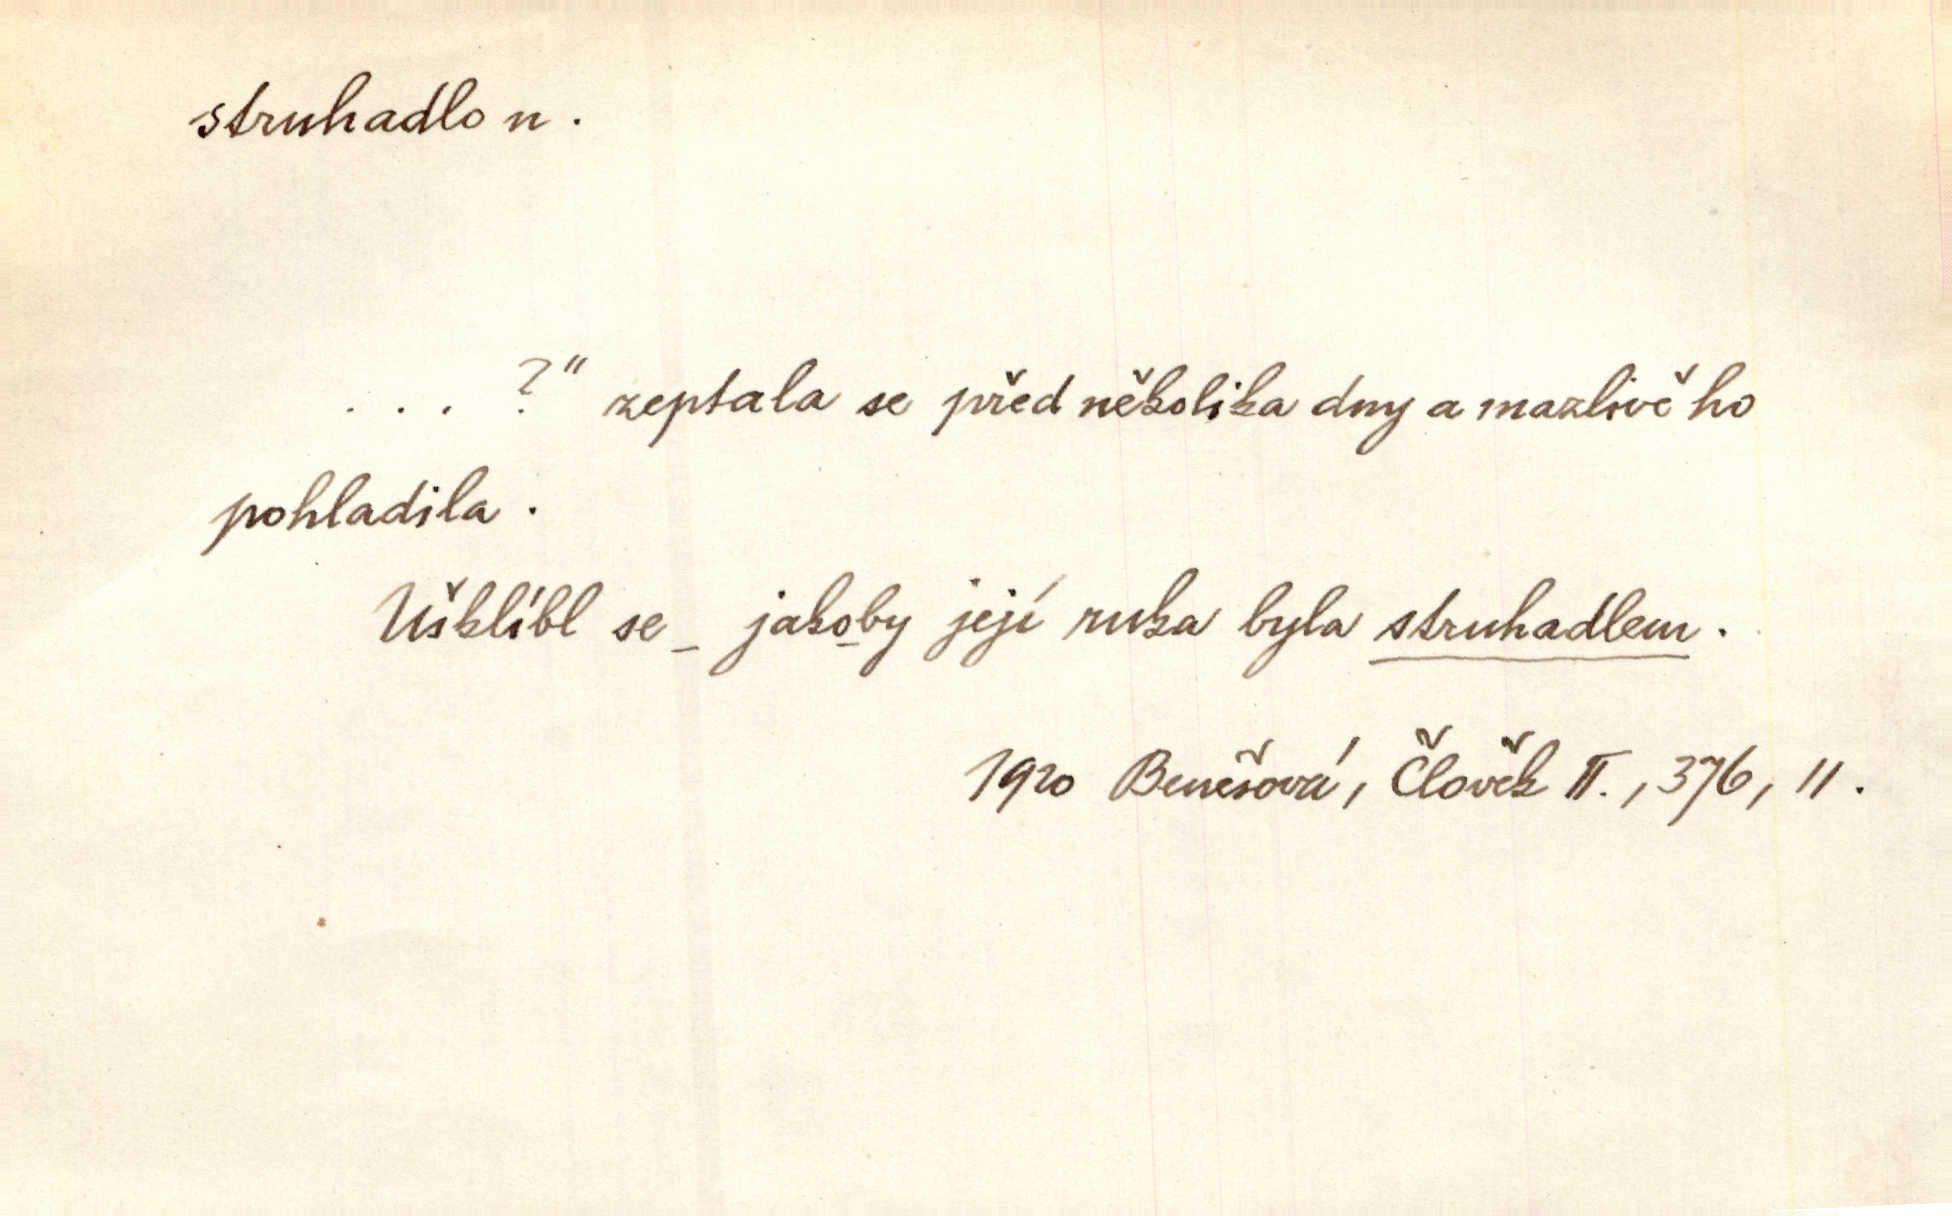 struhadlo n.
. . . ?" zeptala se před několika dny a mazlivě ho
pohladila.
Ušklíbl se _ jakoby její ruka byla struhadlem.
1920 Benešová, Člověk II., 376, 11.